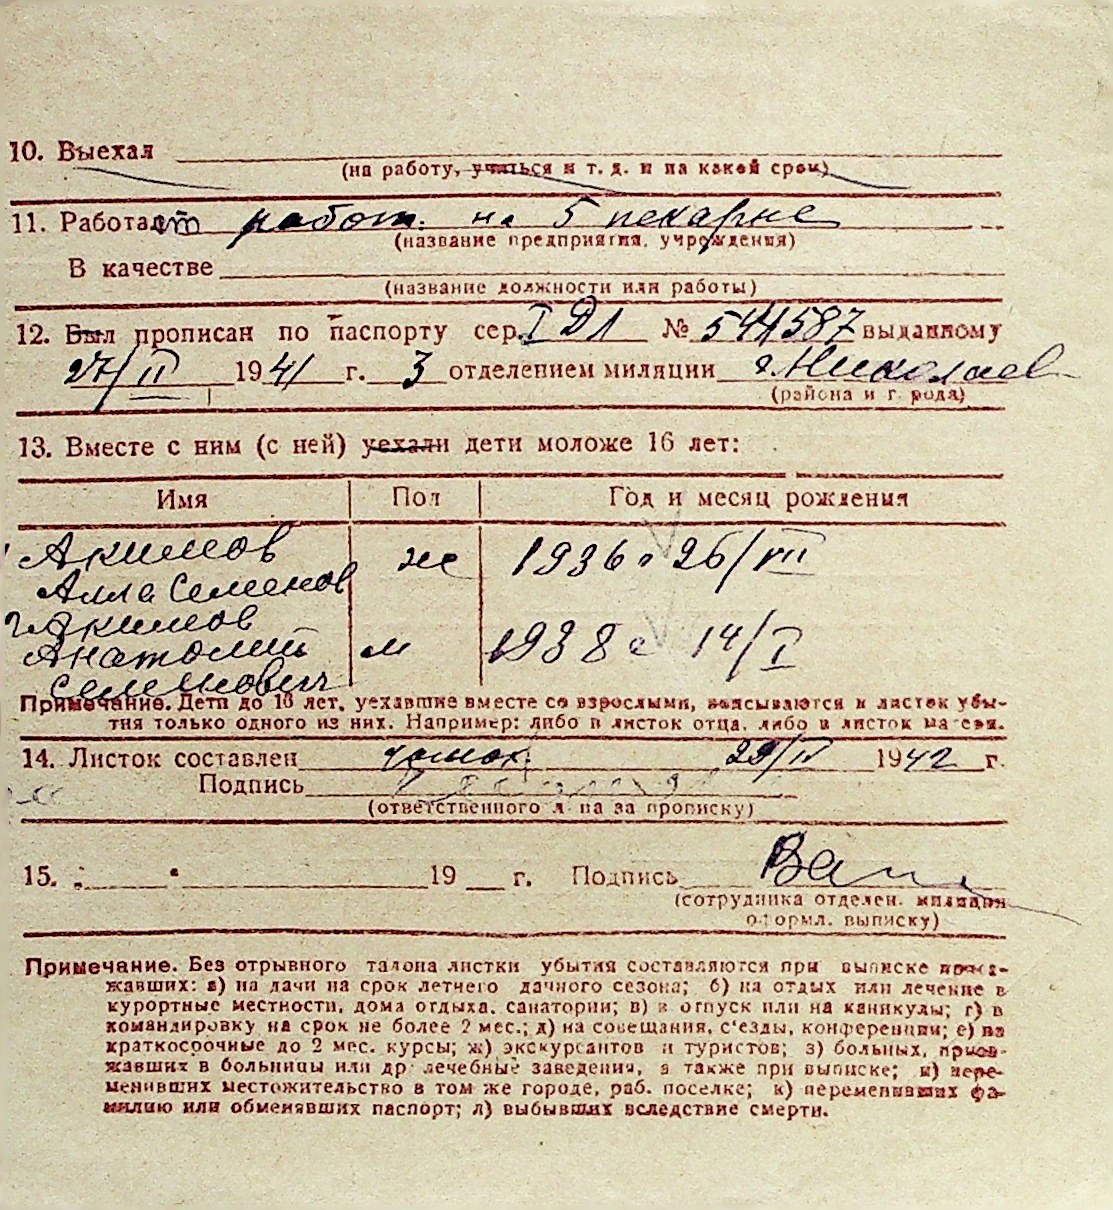 10. Выехал
(на работу, учиться и т. д. и на какой срок)
11. Работает работ. на 5 пекарне
(название предприятия, учреждения)
В качестве
(название должности или работы)
12. Был прописан по паспорту сер. I ДЛ № 541587 выданному
27/II 1941 г. 3 отделением милиции г. Николаев
(района и города)
13. Вместе с ним (с ней) уехали дети моложе 16 лет:
Имя Пол Год и месяц рождения
Акимов
Алла Семенов ж 1936 г 26/VII
2 Акимов
Анатолий м 1938 г 14/I
Семенович
Примечание. Дети до 16 лет, уехавшие вместе со взрослыми, вписываются в листок убы-
тия только одного из них. Например: либо в листок отца, либо в листок матери.
14. Листок составлен 29/IV 1942 г.
Подпись
(ответственного лица за прописку)
15. 19 г. Подпись
(сотрудника отделен. милиции
оформл. выписку)
Примечание. Без отрывного талона листки убытия составляются при выписке приез-
жавших: а) на дачи на срок летнего дачного сезона; б) на отдых или лечение в
курортные местности, дома отдыха, санатории; в) в отпуск или на каникулы; г) в
командировку на срок не более 2 мес.; д) на совещания, с'езды, конференции; е) на
краткосрочные до 2 мес. курсы; ж) экскурсантов и туристов; з) больных, приез-
жавших в больницы или др лечебные заведения, а также при выписке; и) пере-
менивших местожительство в том же городе, раб. поселке; к) переменивших фа-
милию или обменявших паспорт; л) выбывших вследствие смерти.